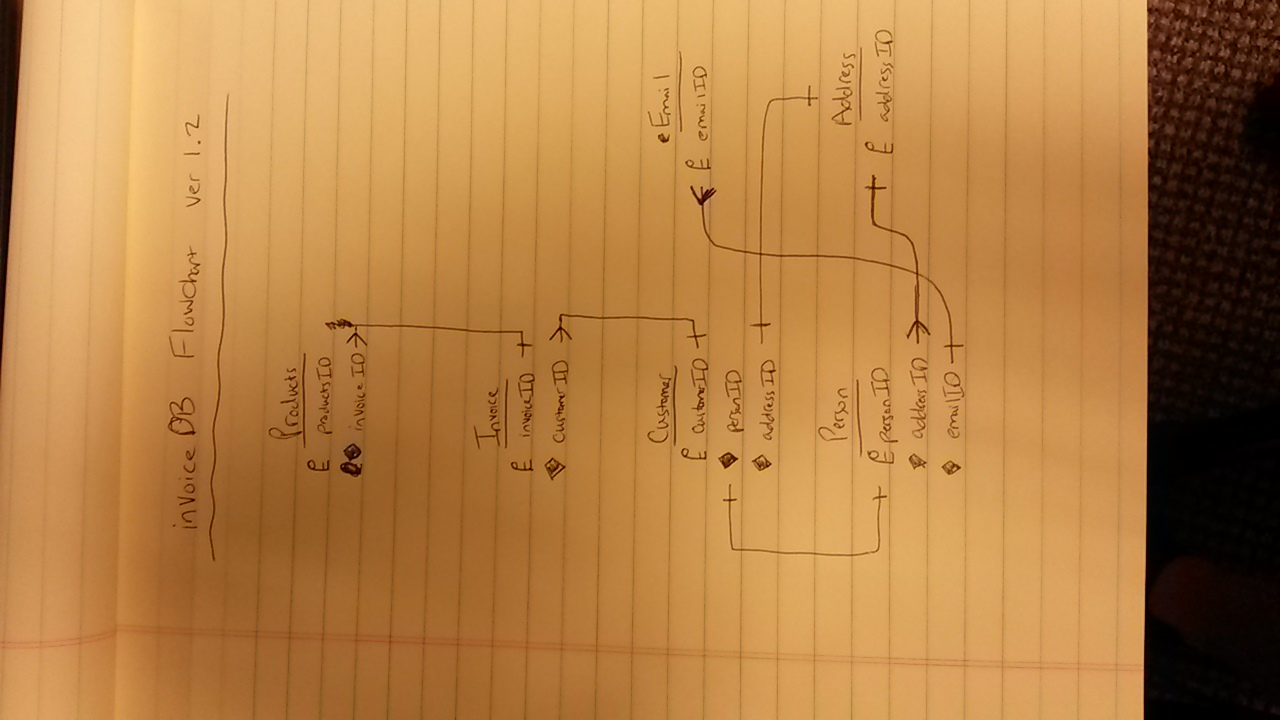 invoice DB Flowchart ver 1.2
Products
productsID
invoiceID
Invoice
invoiceID
CustomerID
Customer
CustomerID
personID
addressID
eEmail
emailID
Person
personID
addressID
emailID
Address
addressID